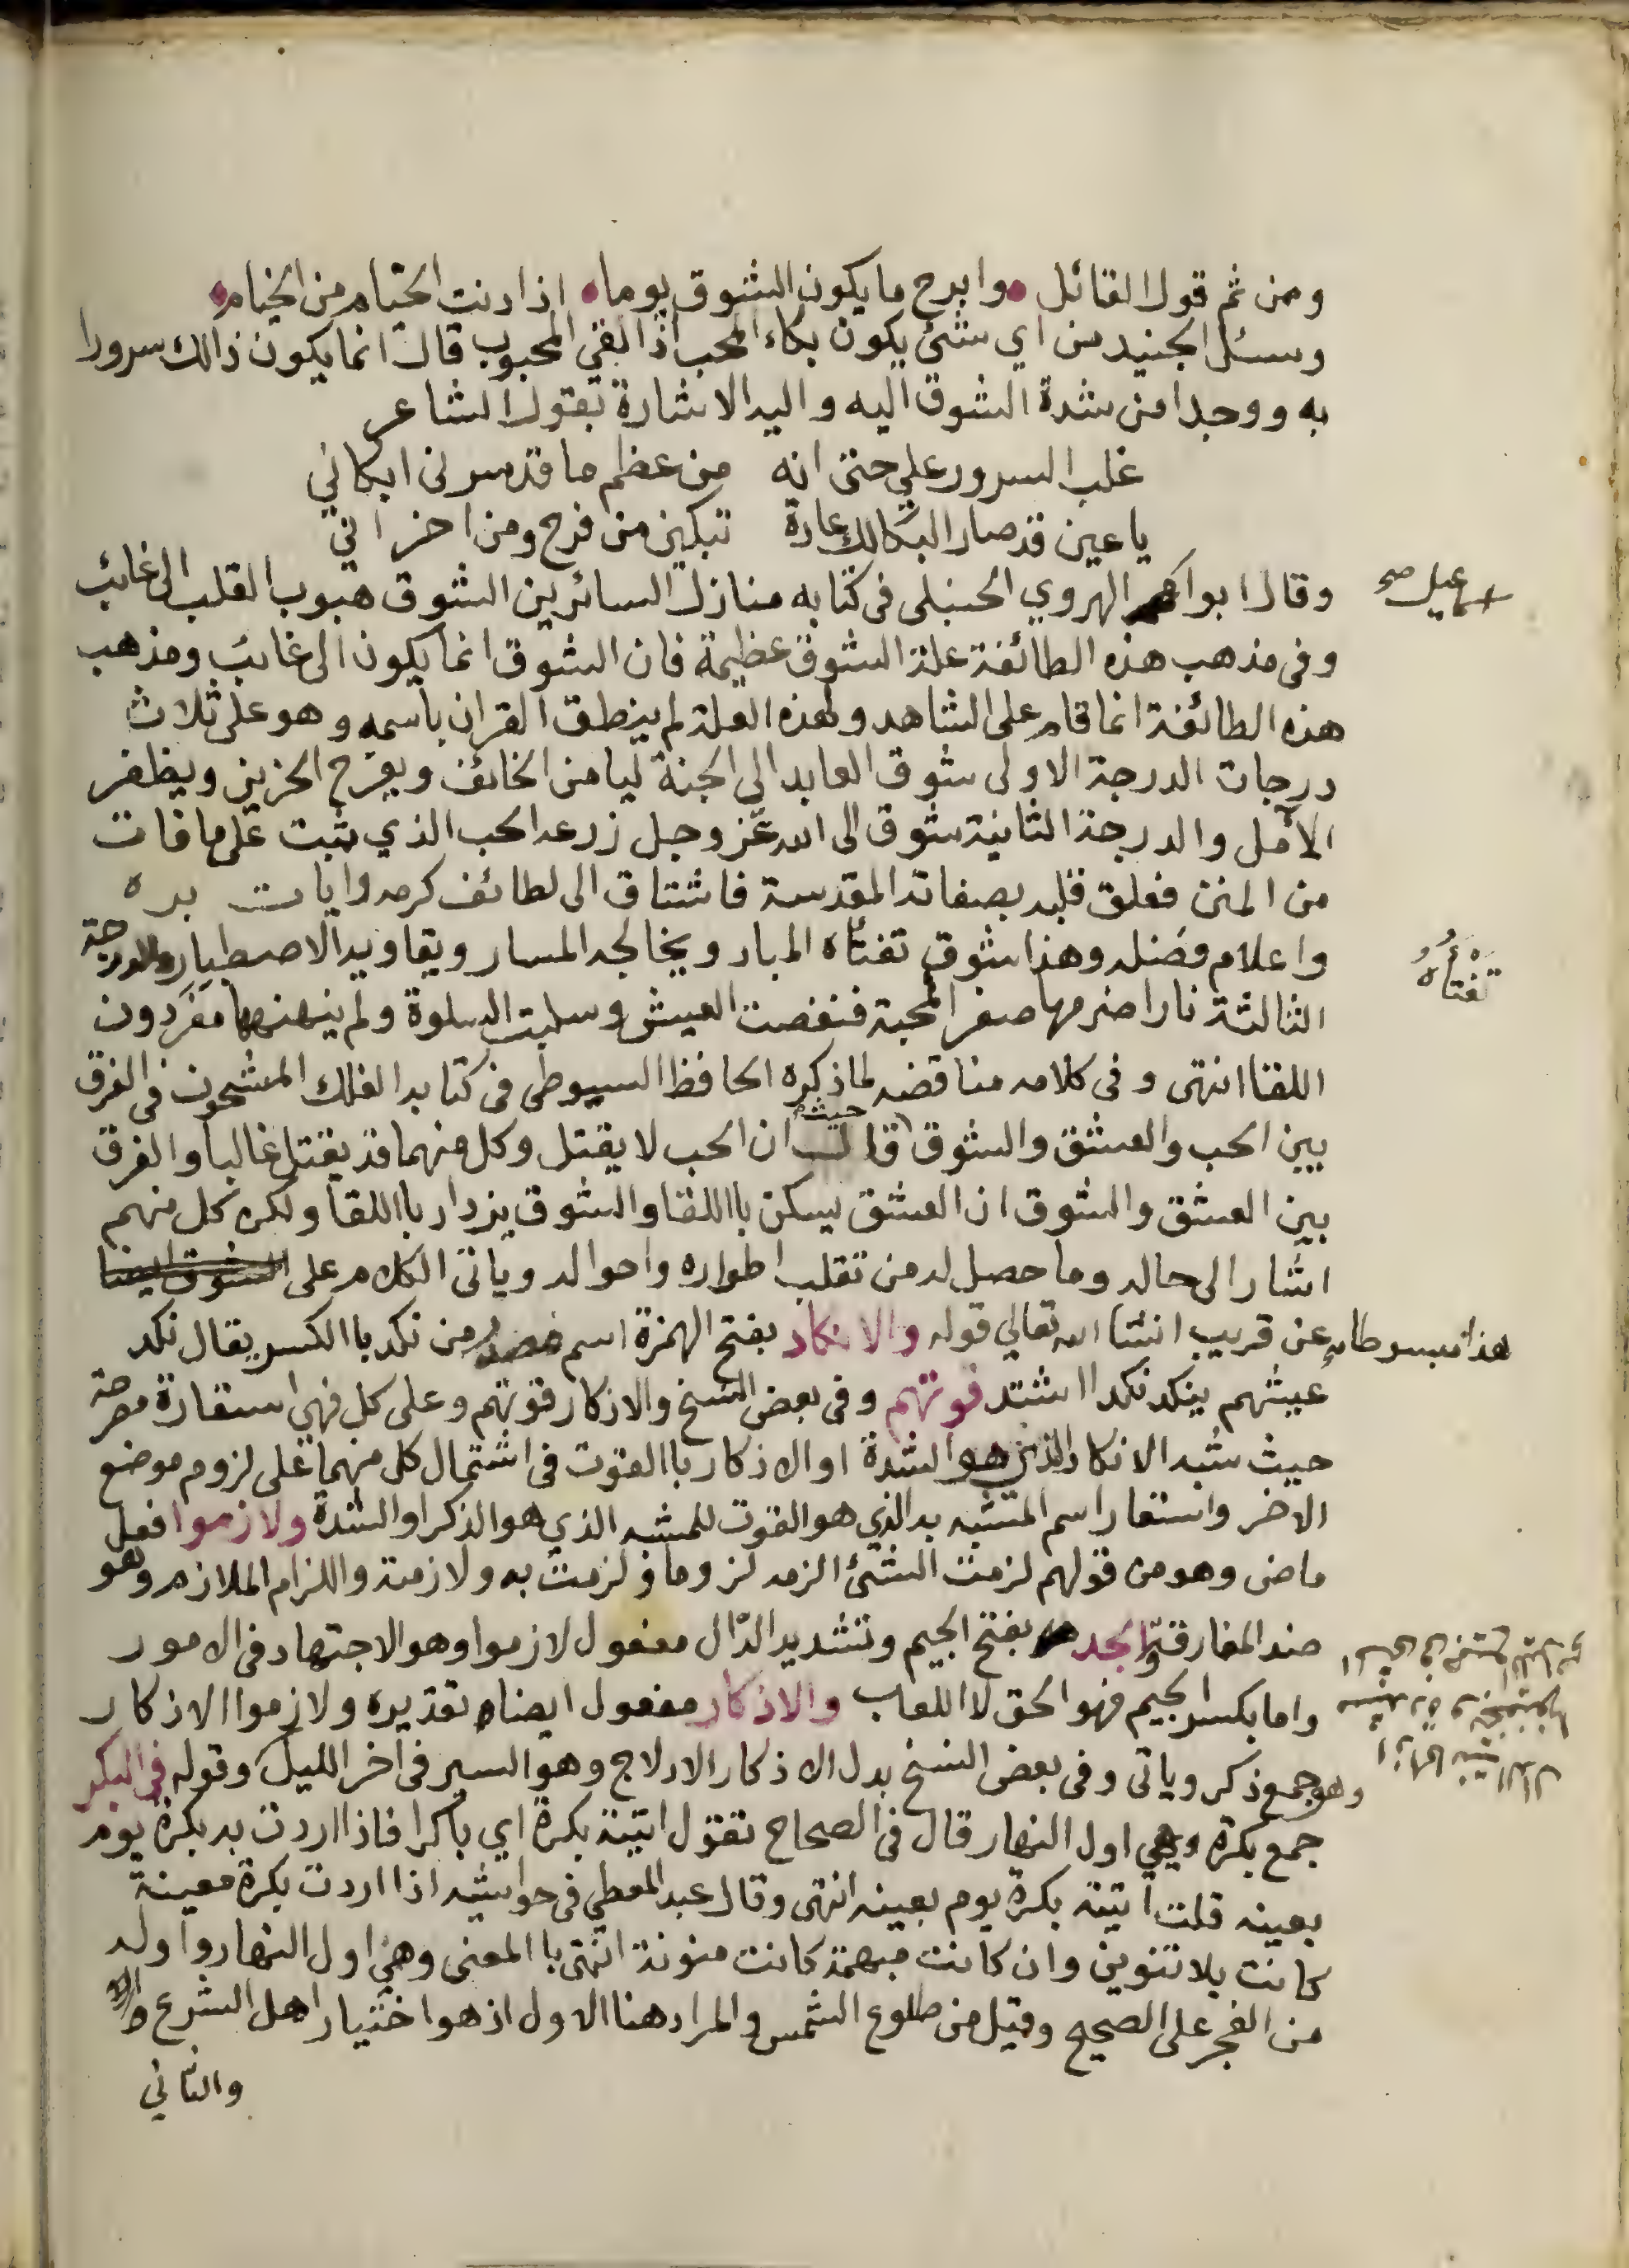 ومن ثم قول القائل وابرح ما يكون الشوق يوما اذا دنت الخيام من الخيام
وسئل الجنيد من اي شئ يكون بكاء المحب اذا لقي المحبوب قال انما يكون ذالك سرورا
به ووجدا من شدة الشوق اليه واليه الاشارة بقول الشاعر
غلب السرور علي حتى انه من عظم ما قد سرنى ابكاني
يا عين قد صار البكا لك عادة تبكين من فرح ومن احزاني
وقال ابوا الهروي الحنبلى فى كتابه منازل السائرين الشوق هبوب القلب الى غائب
سمعيل صح
وفى مذهب هذه الطائفة علة الشوق عظيمة فان الشوق انما يكون الى غائب ومذهب
هذه الطائفة انما قام على الشاهد ولهذه العلة لم ينطق القران باسمه وهو على ثلاث
درجات الدرجة الاولى شوق العابد الى الجنة ليامن الخائف ويفرح الحزين ويظفر
الآمل والدرجة الثانية شوق الى الله عز وجل زرعه الحب الذي ينبت على ما فات
من المنن فعلق قلبه بصفاته المقدسة فاشتاق الى لطائف كرمه وايات بره
واعلام فضله وهذا شوق تفتأه المبار ويخالجه المسار ويقاويه الاصطبار والدرجة
تفتأه
الثالثة نارا ضرمها صفر المحبة فنغصت العيش وسلبت السلوة ولم ينهنهها مقر دون
اللقا انتهى وفى كلامه مناقضه لما ذكره الحافظ السيوطى فى كتابه الفلك المشحون فى الفرق
بين الحب والعشق والشوق حيث قال ان الحب لا يقتل وكل منهما قد يقتل غالبا والفرق
بين العشق والشوق ان العشق يسكن باللقا والشوق يزداد باللقا ولكن كل منهم
اشار الى حاله وما حصل له من تقلب اطواره واحواله وياتى الكلام على الشوق ايضا
هذا مبسوطا عن قريب انشا الله تعالي قوله والانكاد بفتح الهمزة اسم مصدر من نكد باالكسر يقال نكد
عيشهم ينكد نكدا اشتد قوتهم وفى بعض النسخ والاذكار قوتهم وعلى كل فهي استعارة مصرحة
حيث شبه الانكاد الذى هو الشدة او الاذكار باالقوت فى اشتمال كل منهما على لزوم موضع
الاخر واستعار اسم المشبه به الذي هو القوت للمشبه الذي هو الذكر او الشدة ولازموا فعل
ماضى وهو من قولهم لزمت الشئ الزمه لزوما ولزمت به ولازمته واللزام الملازم وهو
ضد المفارقة والجد بفتح الجيم وتشديد الدال مفعول لازموا وهو الاجتهاد فى الامور
واما بكسر الجيم فهو الحق لا اللعاب والاذكار مفعول ايضا تقديره ولازموا الاذكار
وهو جمع ذكر وياتى وفى بعض النسخ بدل الاذكار الادلاج وهو السير فى اخر الليل وقوله فى البكر
جمع بكرة وهي اول النهار قال فى الصحاح تقول اتيته بكرة اي باكرا فاذا اردت به بكرة يوم
بعينه قلت اتيته بكرة يوم بعينه انتهى وقال عبد المعطي فى حواشيه اذا اردت بكرة معينة
كانت بلا تنوين وان كانت مبهمة كانت منونة انتهى باالمعنى وهى اول النهار واوله
من الفجر على الصحيح وقيل من طلوع الشمس والمراد هنا الاول اذ هو اختيار اهل الشرع
والثاني